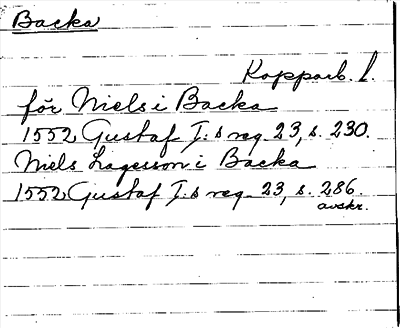 Backa
Kopparb. l.
för Niels i Backa
1552 Gustaf I:s reg. 23, s. 230.
Niels Lagesson i Backa
1552 Gustaf I.s reg. 23, s. 286.
avskr.